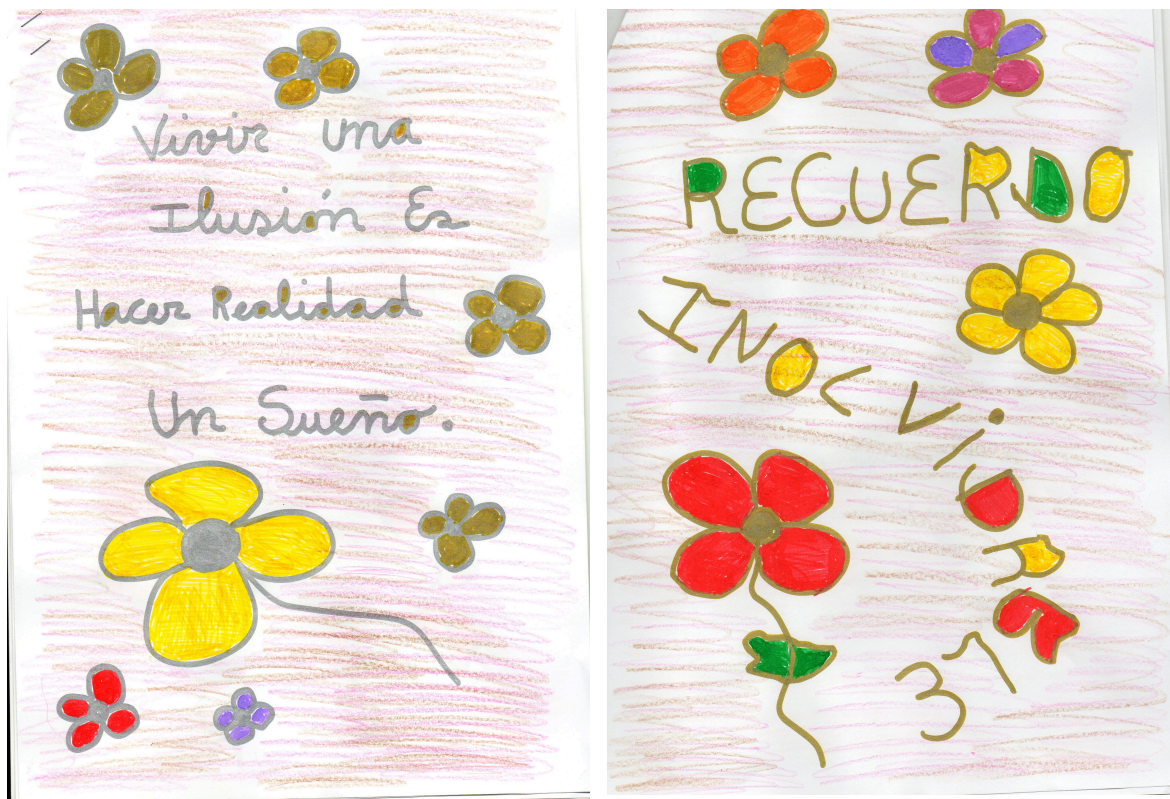 Vivir una
Ilusión Es
Hacer Realidad
Un Sueño.
RECUERDO
INOLViDABLE